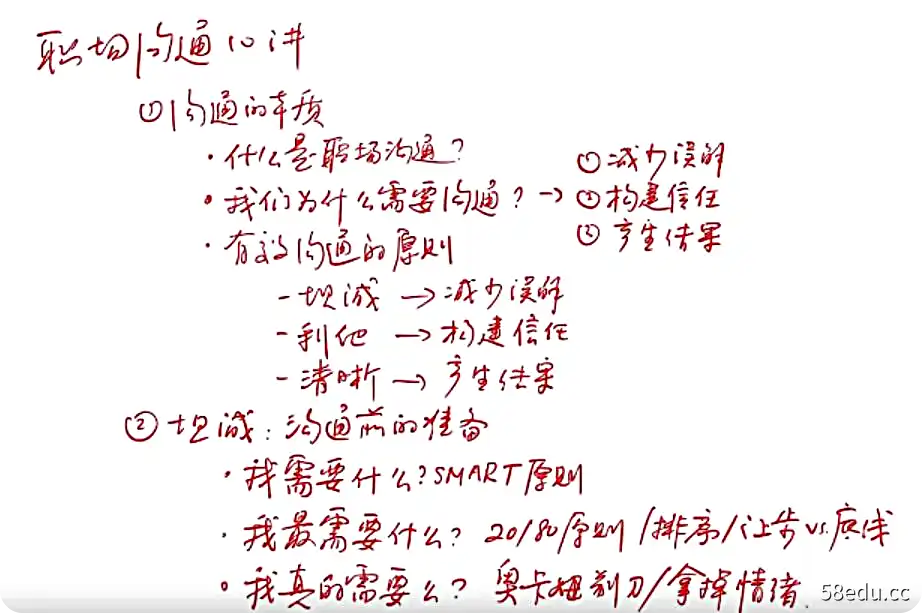 职场沟通10讲
① 沟通的本质
· 什么是职场沟通?
· 我们为什么需要沟通? → ① 减少误解
② 构建信任
③ 产生结果
· 有效沟通的原则
- 坦诚 → 减少误解
- 利他 → 构建信任
- 清晰 → 产生结果
② 坦诚: 沟通前的准备
· 我需要什么? SMART原则
· 我最需要什么? 20/80原则/排序/让步vs.底线
· 我真的需要么? 奥卡姆剃刀/拿掉情绪
58edu.cc